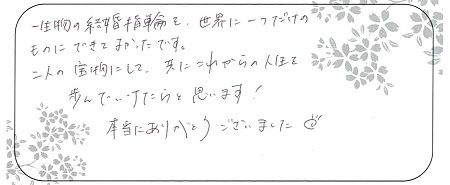 一生物の結婚指輪を、世界に一つだけの
ものにできてよかったです。
二人の宝物にして、共にこれからの人生を
歩んでいけたらと思います!
本当にありがとうございました